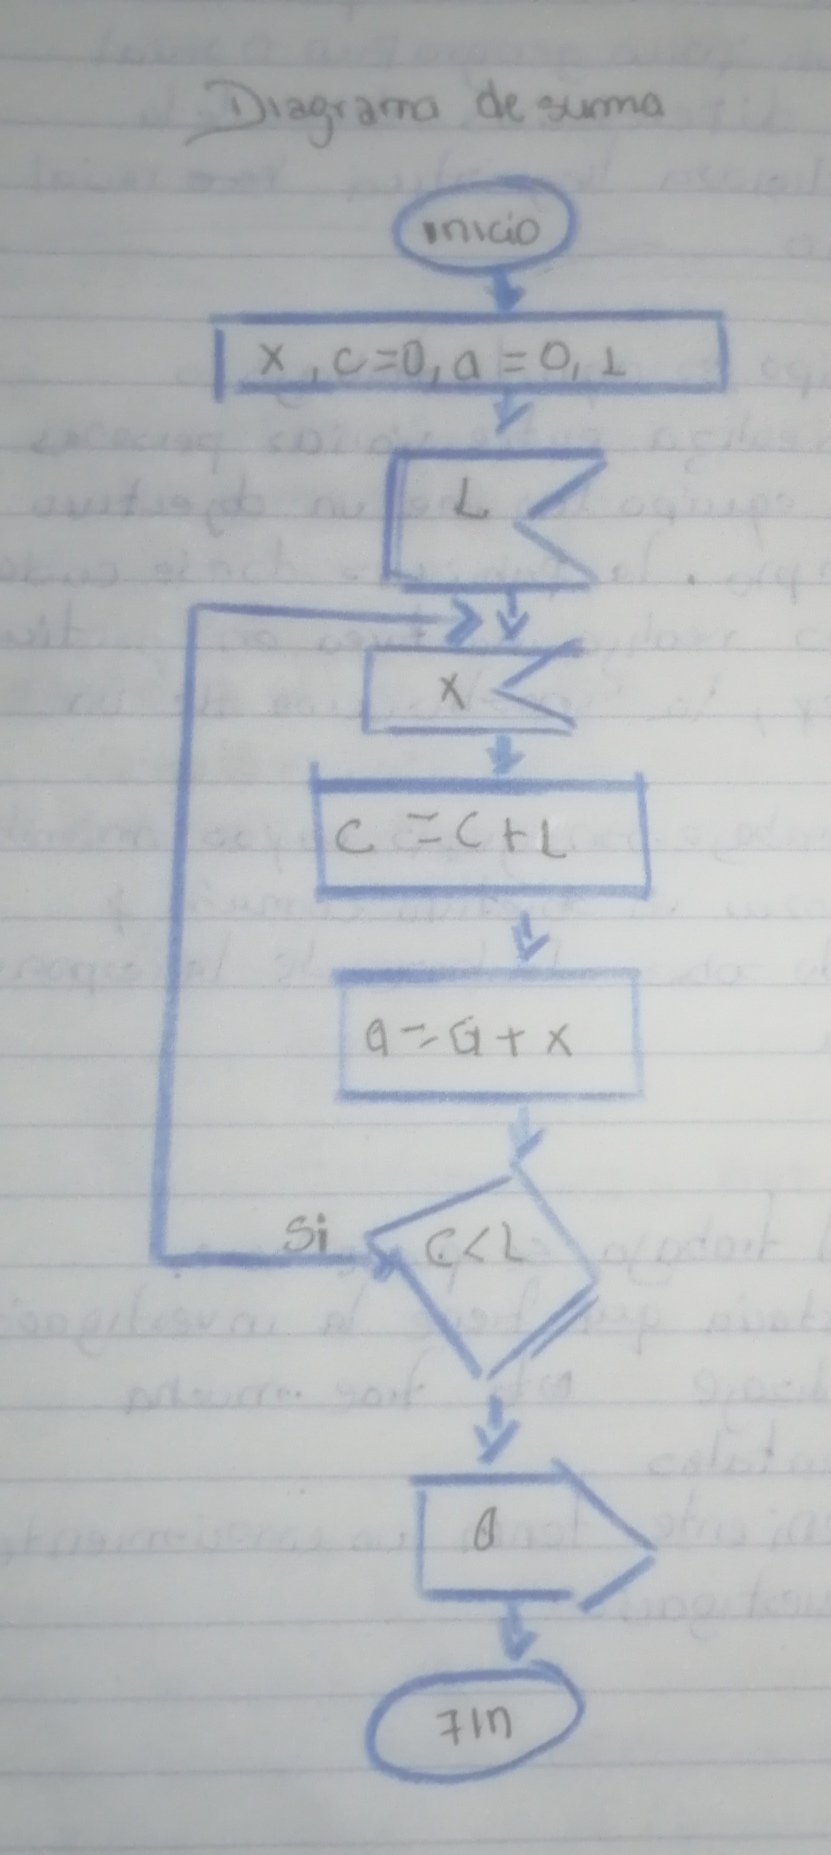 Diagrama de suma
inicio
X, C=0, a=0, L
L
X
C = C+L
a = a + x
Si
C<L
a
Fin